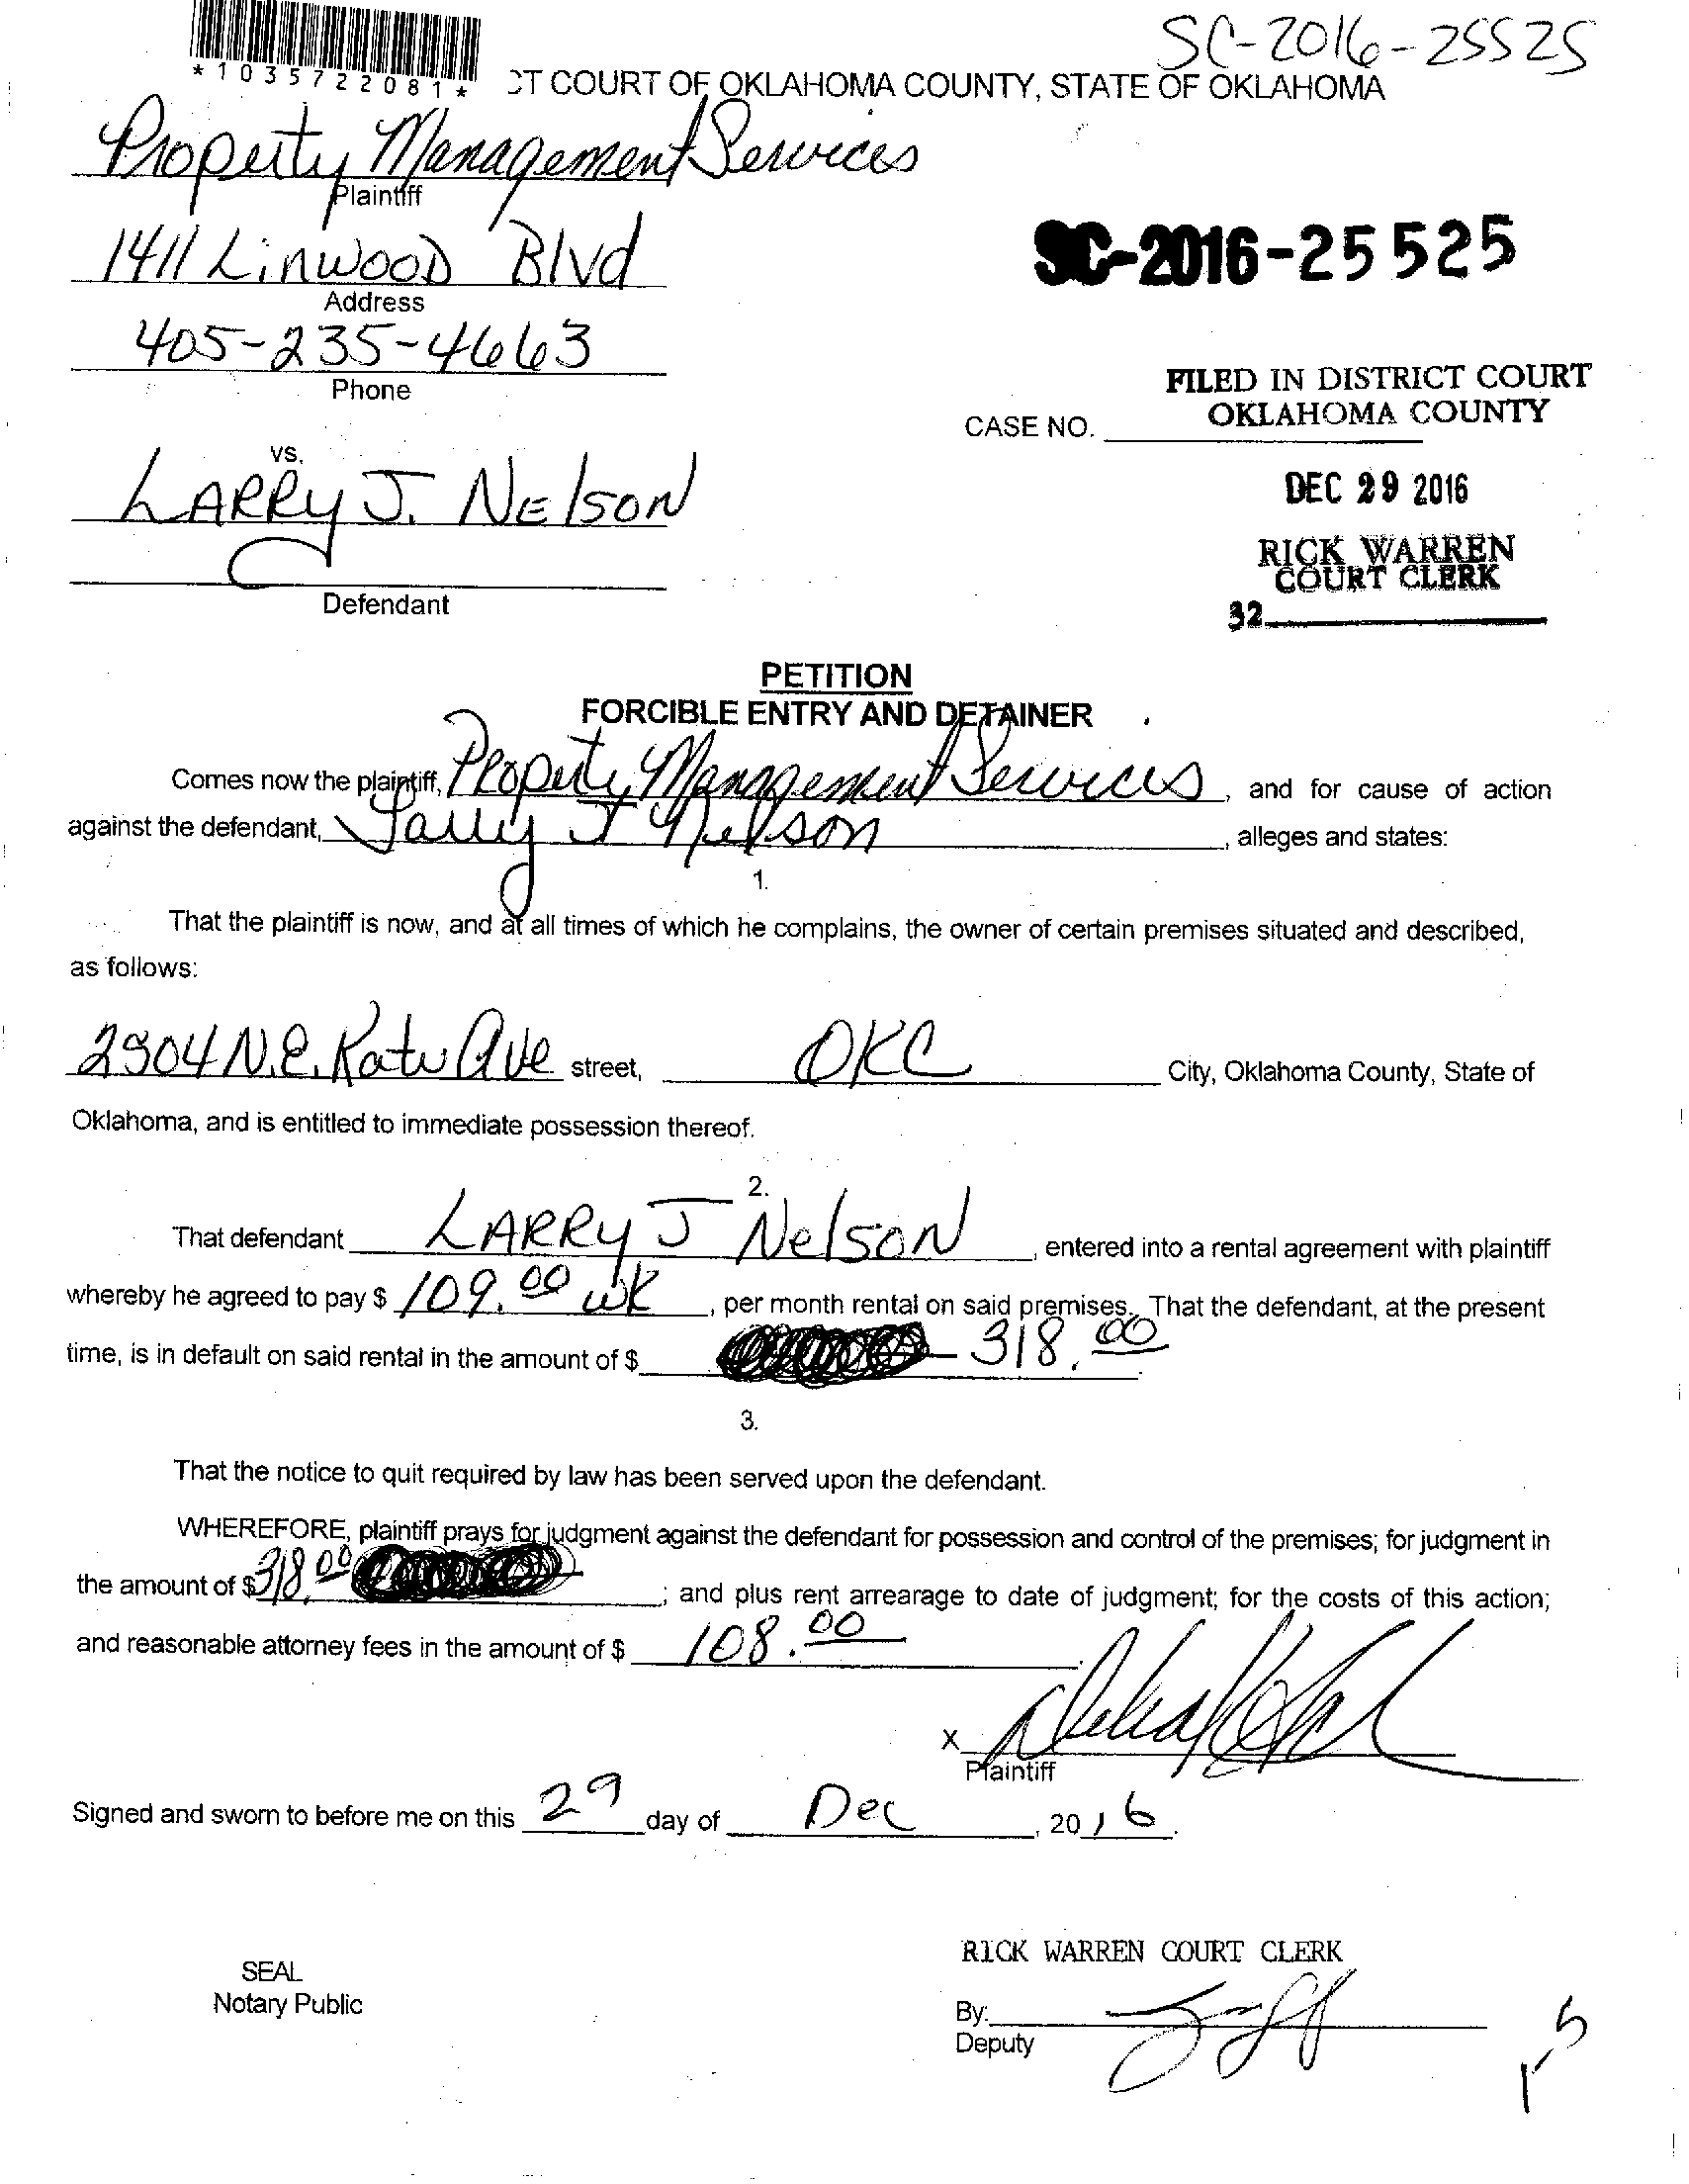 SC-2016-25525
*1035722081*
CT COURT OF OKLAHOMA COUNTY, STATE OF OKLAHOMA
Property Management Services
Plaintiff
1411 Linwood Blvd
Address
SC-2016-25525
405-235-4663
Phone
FILED IN DISTRICT COURT
OKLAHOMA COUNTY
CASE NO.
vs.
DEC 29 2016
LARRY J. NElSON
RICK WARREN
COURT CLERK
Defendant
32
PETITION
FORCIBLE ENTRY AND DETAINER
Comes now the plaintiff, Property Management Services, and for cause of action
against the defendant, Larry J Nelson, alleges and states:
1.
That the plaintiff is now, and at all times of which he complains, the owner of certain premises situated and described,
as follows:
2904 N.E. Ave street, OKC City, Oklahoma County, State of
Oklahoma, and is entitled to immediate possession thereof.
2.
That defendant LARRY J NelsoN, entered into a rental agreement with plaintiff
whereby he agreed to pay $ 109.00 wk, per month rental on said premises. That the defendant, at the present
time, is in default on said rental in the amount of $ 318.00
3.
That the notice to quit required by law has been served upon the defendant.
WHEREFORE, plaintiff prays for judgment against the defendant for possession and control of the premises; for judgment in
the amount of $318.00; and plus rent arrearage to date of judgment; for the costs of this action;
and reasonable attorney fees in the amount of $ 108.00
X
Plaintiff
Signed and sworn to before me on this 29 day of Dec, 2016.
RICK WARREN COURT CLERK
SEAL
Notary Public
By:
Deputy
1-5